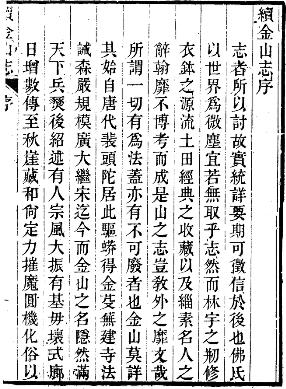 續金山志序
志者所以討故實統詳要期可徵信於後也佛氏
以世界爲微塵宜若無取乎志然而林宇之剏修
衣鉢之源流土田經典之收藏以及緇素名人之
辭翰靡不博考而成是山之志豈教外之靡文哉
所謂一切有爲法葢亦有不可廢者也金山莫詳
其始自唐代裴頭陀居此驅蟒得金爰無建寺法
誡森嚴規模廣大繼宋迄今而金山之名隱然滿
天下兵燹後紹述有人宗風大振有基毋壞式廓
日增數傳至秋崖藏和尙定力摧魔圓機化俗以
續金山志 序